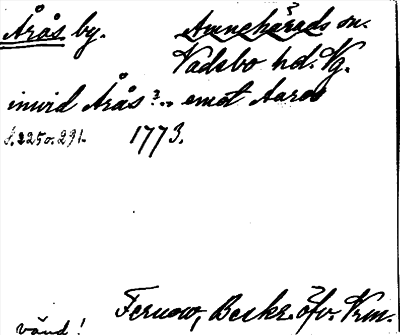 Årås by. Amnehärads sn.
Vadsbo hd. Vg.
invid Årås?.. emot Aaras
s. 225 o. 291. 1773.
Fernow, Beskr. öfv. Vrm.
vänd!